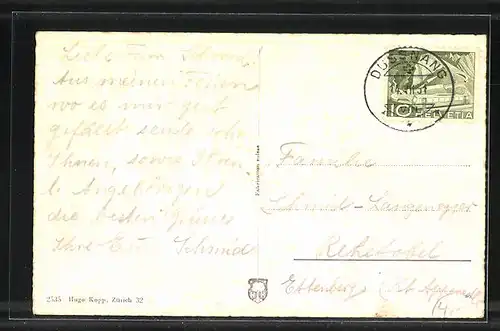 Liebe Frau Schmid
Aus meinen Ferien
wo es mir gut
gefällt sende ich
Ihnen, sowie Ihren
l. Angehörigen
die besten Grüsse
Ihre E. Schmid
2535 Hugo Kopp, Zürich 32
DUSSNANG
14. VII. 51
10 HELVETIA
Familie
Schmid-Langenegger
Rehetobel
Ettenberg (Kt. Appenzell)